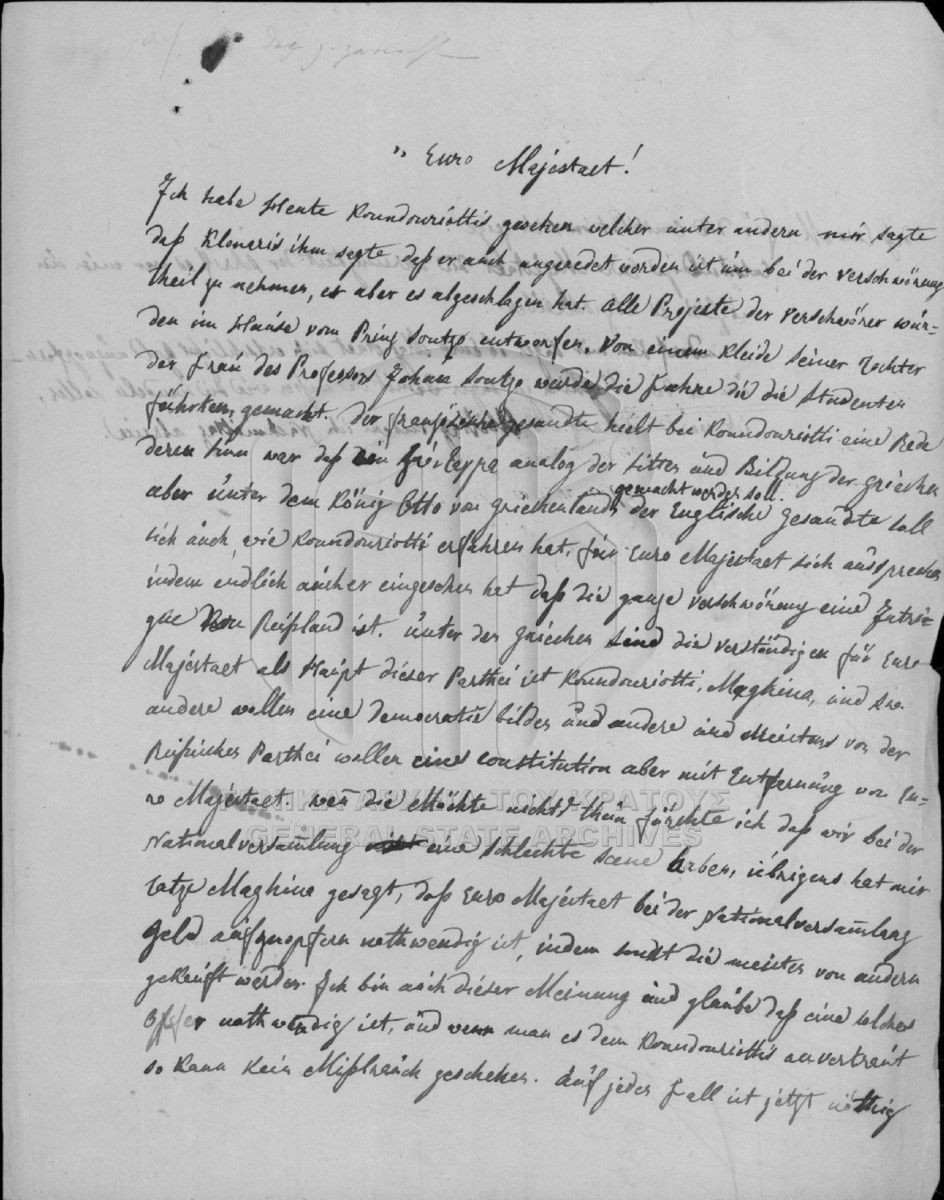 " Eure Majestaet!
Ich habe Heute Koundouriottis gesehen welcher unter andern mir sagte
daß Klonaris ihm sagte daß er auch angeredet worden ist um bei der Verschwörung
theil zu nehmen, er aber es abgeschlagen hat. Alle Projecte der Verschwörer wur-
den im Hause vom Prinz Soutzo entworfen. Von einem Kleide seiner Tochter
der Frau des Professors Johan Soutzo wurde die Faehre die die Studenten
führten, gemacht. Der französische Gesandte hielt bei Koundouriotti eine Rede
deren Sinn war daß ein Σύνταγμα analog der Sitten und Bildung der Griechen
gemacht werden soll.
aber unter dem König Otto von Griechenland der Englische Gesandte soll
sich auch, wie Koundouriotti erfahren hat, für Eure Majestaet sich aussprechen
indem endlich auch er eingesehen hat daß die ganze Verschwörung eine Intri-
gue von Rußland ist. Unter den Griechen sind die verständigen für Eure
Majestaet als Haupt dieser Parthei ist Koundouriotti, Maghina, und
andere wollen eine Democratie bilden und andere und meistens von der
Rußischen Parthei wollen eine Constitution aber mit Entfernung von Eu-
re Majestaet. Weñ die Mächte nichts thun fürchte ich daß wir bei der
Nationalversam̃lung eine schlechte Scene haben, übrigens hat mir
Tatzi Maghina gesagt, daß Eure Majestaet bei der Nationalversam̃lung
Geld aufzuopfern nothwendig ist, indem sonst die meisten von andern
gekauft werden. Ich bin auch dieser Meinung und glaube daß eine solches
Opfer nothwendig ist, und wenn man es dem Koundouriottis anvertraut
so kann kein Mißbrauch geschehen. Auf jeden Fall ist jetzt nöthig
ΓΕΝΙΚΑ ΑΡΧΕΙΑ ΤΟΥ ΚΡΑΤΟΥΣ
GENERAL STATE ARCHIVES